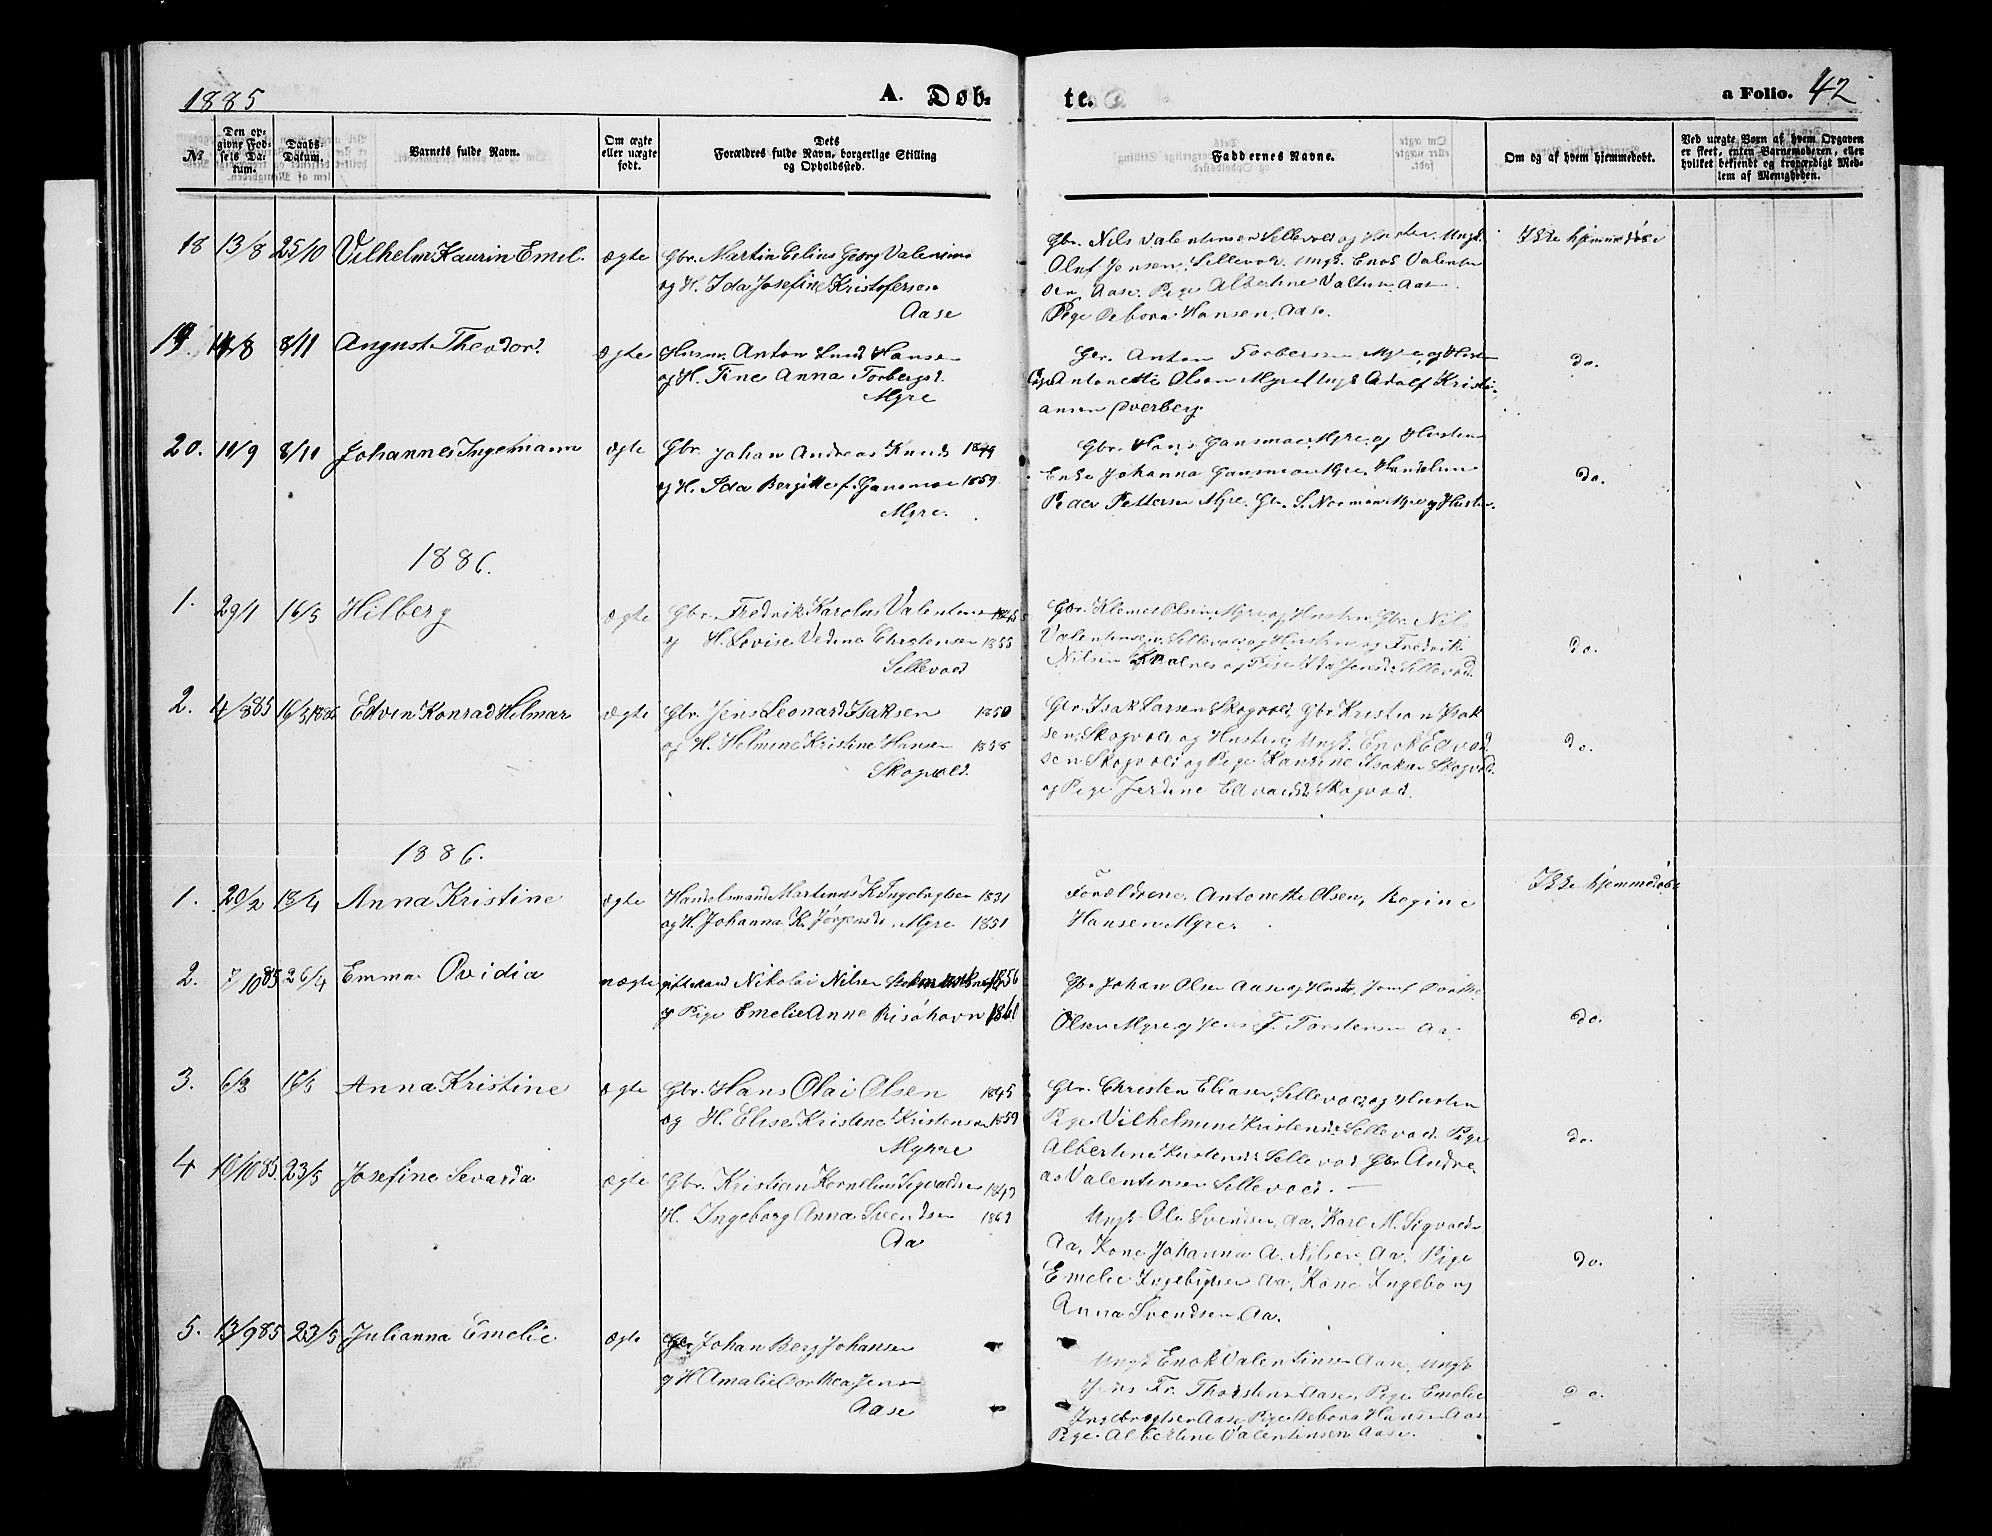 1885
A. Døb-
te.
a Folio. 42
No
Den opgivne Fødsels Datum.
Daabs-Datum.
Barnets fulde Navn.
Om ægte eller uægte født.
Dets Forældres fulde Navn, borgerlige Stilling og Opholdssted.
Faddernes Navne.
Om og af hvem hjemmedøbt.
Ved uægte Børn af hvem Opgaven er skeet, enten Barnemoderen, eller hvilket bekjendt og troværdigt Medlem af Menigheden.
18 13/8 25/10 Vilhelm Kaurin Emil. ægte Gbr. Martin Elius Georg Valentins
og H. Ida Josefine Kristofersen
Aase
Gbr. Nils Valentinsen Sellevold og Hustru. Ungk.
Oluf Jensen, Sellevold. Ungk. Enok Valentin
sen, Aase. Pige Albertine Valtins. Aase
Pige Debora Hansen, Aase.
Ikke hjemmedøbt
19. 14/8 8/11 August Theodor. ægte Husm. Anton Lund Hansen
og H. Tine Anna Torbergsd.
Myre
Gbr. Anton Torbersen Myre, og Hustru
Pige Antonette Olsen Myre Ungk. Adolf Kristi-
ansen Dverberg.
do.
20. 11/9 8/11 Johannes Ingemann ægte Gbr. Johan Andreas Knuds 1849
og H. Ida Bergitte f. Gansmoe 1859
Myre.
Gbr. Hans Gansmoe Myre, og Hustru
Enke Johanna Gansmoe Myre, Handelsm
Peder Pettersen Myre. Gbr. S. Norman Myre og Hustru.
do.
1886.
1. 29/1 16/5 Hilberg ægte Gbr. Fredrik Karolus Valentins 1845
og H. Lovise Vedina Christensen 1855
Sellevold
Gbr. Klemet Olsen, Myre, og Hustru, Gbr. Nils
Valentinsen, Sellevold og Hustru og Fredrik
Nilsen og Pige Ida Jensd. Sellevold.
do.
2. 4/8 85 16/5 1886 Edvin Konrad Hilmar ægte Gbr. Jens Leonard Isaksen 1850
og H. Helmine Kristine Hansen 1858
Skogvold.
Gbr. Isak Larsen Skogvold, Gbr. Kristian Isak
sen, Skogvold og Hustru, Ungk. Enok Edvard
sen Skogvold og Pige Kaurine Isaksen Skogvold.
og Pige Jerdine Edvardsd. Skogvold.
do.
1886.
1. 20/2 18/4 Anna Kristine ægte Handelsmand Martinus K. Ingebrigtsen 1831
og H. Johanna K. Jørgensd. Myre 1851
Forældrene, Antonette Olsen, Regine
Hansen Myre.
Ikke hjemmedøbt
2. 7/10 85 26/4 Emma Ovidia uægte giftemand Nikolai Nilsen 1856
og Pige Emelie Anne Risøhavn 1861
Gbr. Johan Olsen Aase og Hustru,
Olsen Myre og Jens F. Torstensen Aa.
do.
3. 6/3 16/5 Anna Kristine ægte Gbr. Hans Olai Olsen 1845
og H. Elise Kristine Kristensen 1859
Myhre
Gbr. Christen Eliasen, Sellevold, og Hustru
Pige Vilhelmine Kristensd. Sellevold. Pige
Albertine Kristensd. Sellevold Gbr. Andre
as Valentinsen Sellevold. —
do.
4 16/10 85. 23/5 Josefine Sevarda ægte Gbr. Kristian Kornelius Sigvaldsen 1849
H. Ingeborg Anna Svendsen 1863
Aa
Ungk. Ole Svendsen, Aa, Karl M. Sigvalds
Aa, Kone Johanna A. Nilsen, Aa. Pige
Emelie Ingebrigtsen Aa, Kone Ingeborg
Anna Svendsen, Aa.
do.
5. 13/9 85 23/5 Julianna Emelie ægte Gbr. Johan Berg Johansen
og H Amalie Dorthea Jens
Aase
Ungk. Enok Valentinsen Aase, Ungk
Jens Fr. Thorstens Aase, Pige Emelie
Ingebrigtsen Aase, Pige Debora Hansen Aase
Pige Albertine Valentinsen Aase.
do.